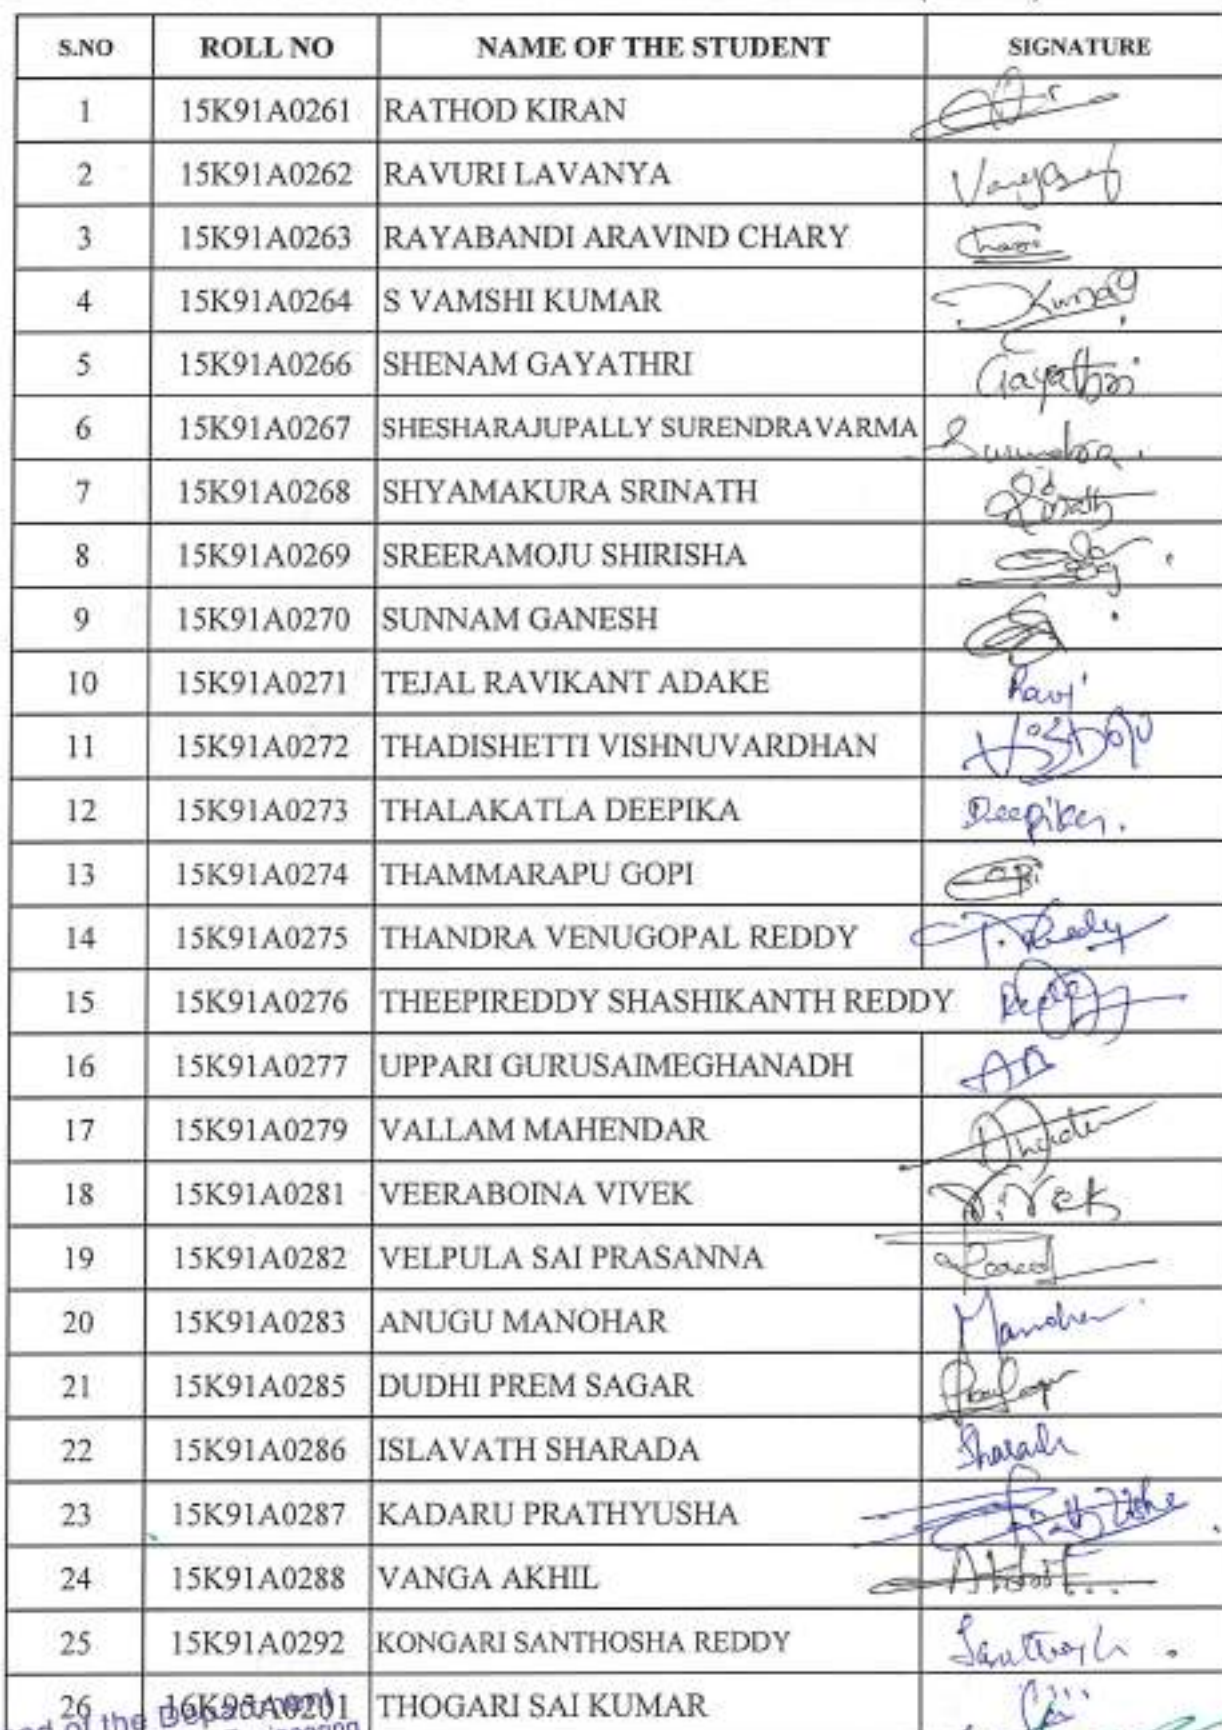 S.NO ROLL NO NAME OF THE STUDENT SIGNATURE
1 15K91A0261 RATHOD KIRAN
2 15K91A0262 RAVURI LAVANYA
3 15K91A0263 RAYABANDI ARAVIND CHARY
4 15K91A0264 S VAMSHI KUMAR Kumar
5 15K91A0266 SHENAM GAYATHRI Gayathri
6 15K91A0267 SHESHARAJUPALLY SURENDRAVARMA
7 15K91A0268 SHYAMAKURA SRINATH
8 15K91A0269 SREERAMOJU SHIRISHA
9 15K91A0270 SUNNAM GANESH
10 15K91A0271 TEJAL RAVIKANT ADAKE Ravi
11 15K91A0272 THADISHETTI VISHNUVARDHAN
12 15K91A0273 THALAKATLA DEEPIKA Deepika.
13 15K91A0274 THAMMARAPU GOPI Gopi
14 15K91A0275 THANDRA VENUGOPAL REDDY T. Reddy
15 15K91A0276 THEEPIREDDY SHASHIKANTH REDDY
16 15K91A0277 UPPARI GURUSAIMEGHANADH
17 15K91A0279 VALLAM MAHENDAR
18 15K91A0281 VEERABOINA VIVEK V.Vek
19 15K91A0282 VELPULA SAI PRASANNA
20 15K91A0283 ANUGU MANOHAR Manohar
21 15K91A0285 DUDHI PREM SAGAR
22 15K91A0286 ISLAVATH SHARADA Sharada
23 15K91A0287 KADARU PRATHYUSHA
24 15K91A0288 VANGA AKHIL
25 15K91A0292 KONGARI SANTHOSHA REDDY
26 16K95A0201 THOGARI SAI KUMAR
of the Department